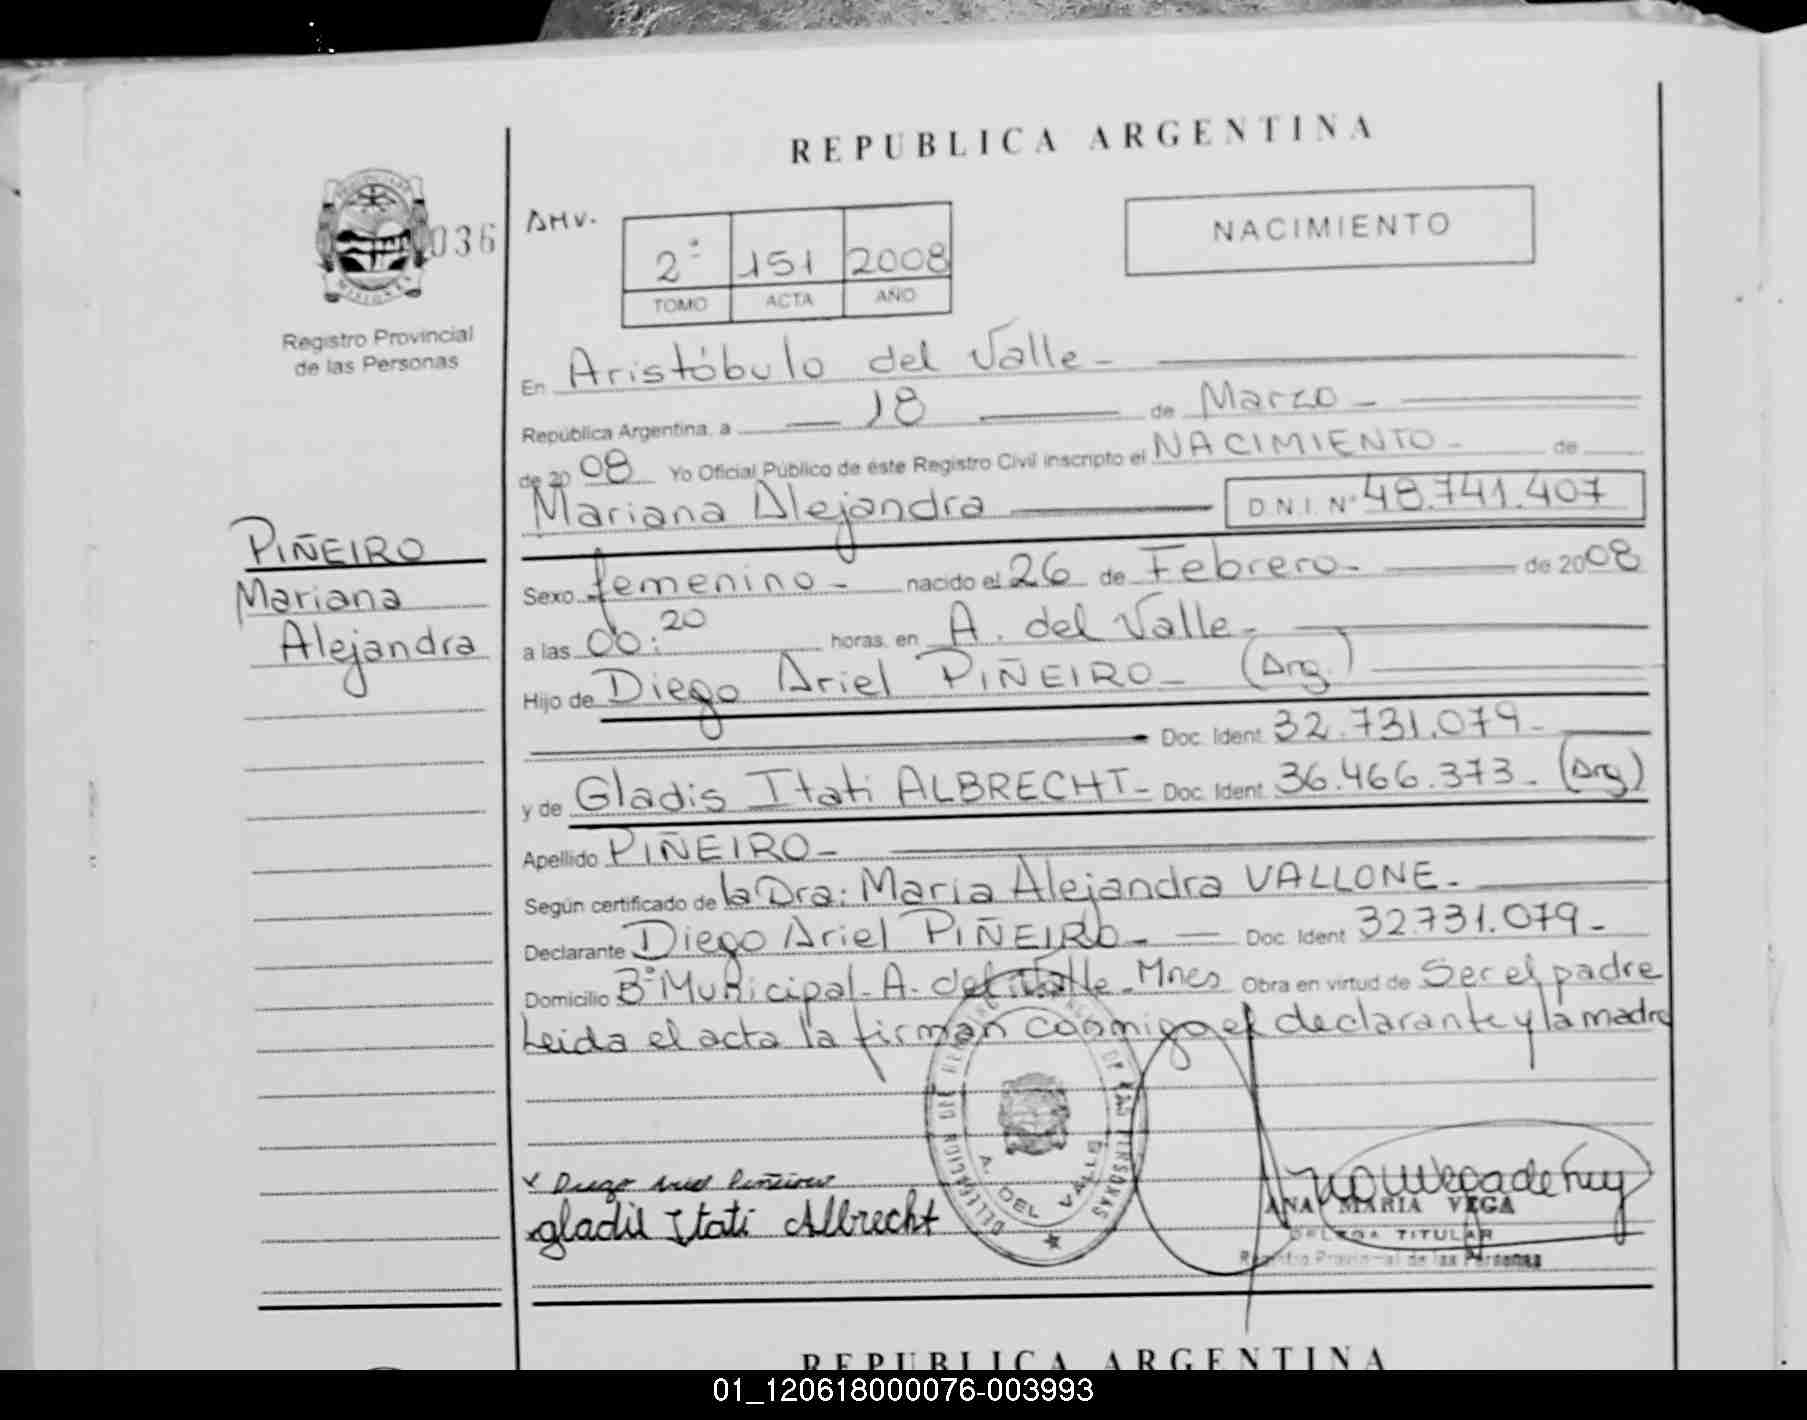 REPUBLICA ARGENTINA
036
AMV.
NACIMIENTO
2º 151 2008
TOMO ACTA AÑO
Registro Provincial
de las Personas
En Aristóbulo del Valle -
República Argentina, a 18 de Marzo -
de 2008 Yo Oficial Público de éste Registro Civil inscripto el NACIMIENTO - de
Mariana Alejandra D.N.I. Nº 48.741.407
PIÑEIRO
Mariana
Alejandra
Sexo femenino - nacido el 26 de Febrero - de 2008
a las 00:20 horas, en A. del Valle -
Hijo de Diego Ariel PIÑEIRO - (Arg.)
Doc. Ident. 32.731.079 -
y de Gladis Itati ALBRECHT - Doc. Ident. 36.466.373 - (Arg)
Apellido PIÑEIRO -
Según certificado de la Dra: María Alejandra VALLONE -
Declarante Diego Ariel PIÑEIRO - Doc. Ident 32.731.079 -
Domicilio Bº Municipal - A. del Valle - Mnes Obra en virtud de Ser el padre
Leida el acta la firman conmigo el declarante y la madre
DE LAS PERSONAS
A. DEL VALLE
Diego Ariel Piñeiro
gladis Itati Albrecht
ANA MARIA VEGA
TITULAR
Registro Provincial de las Personas
REPUBLICA ARGENTINA
01_120618000076-003993